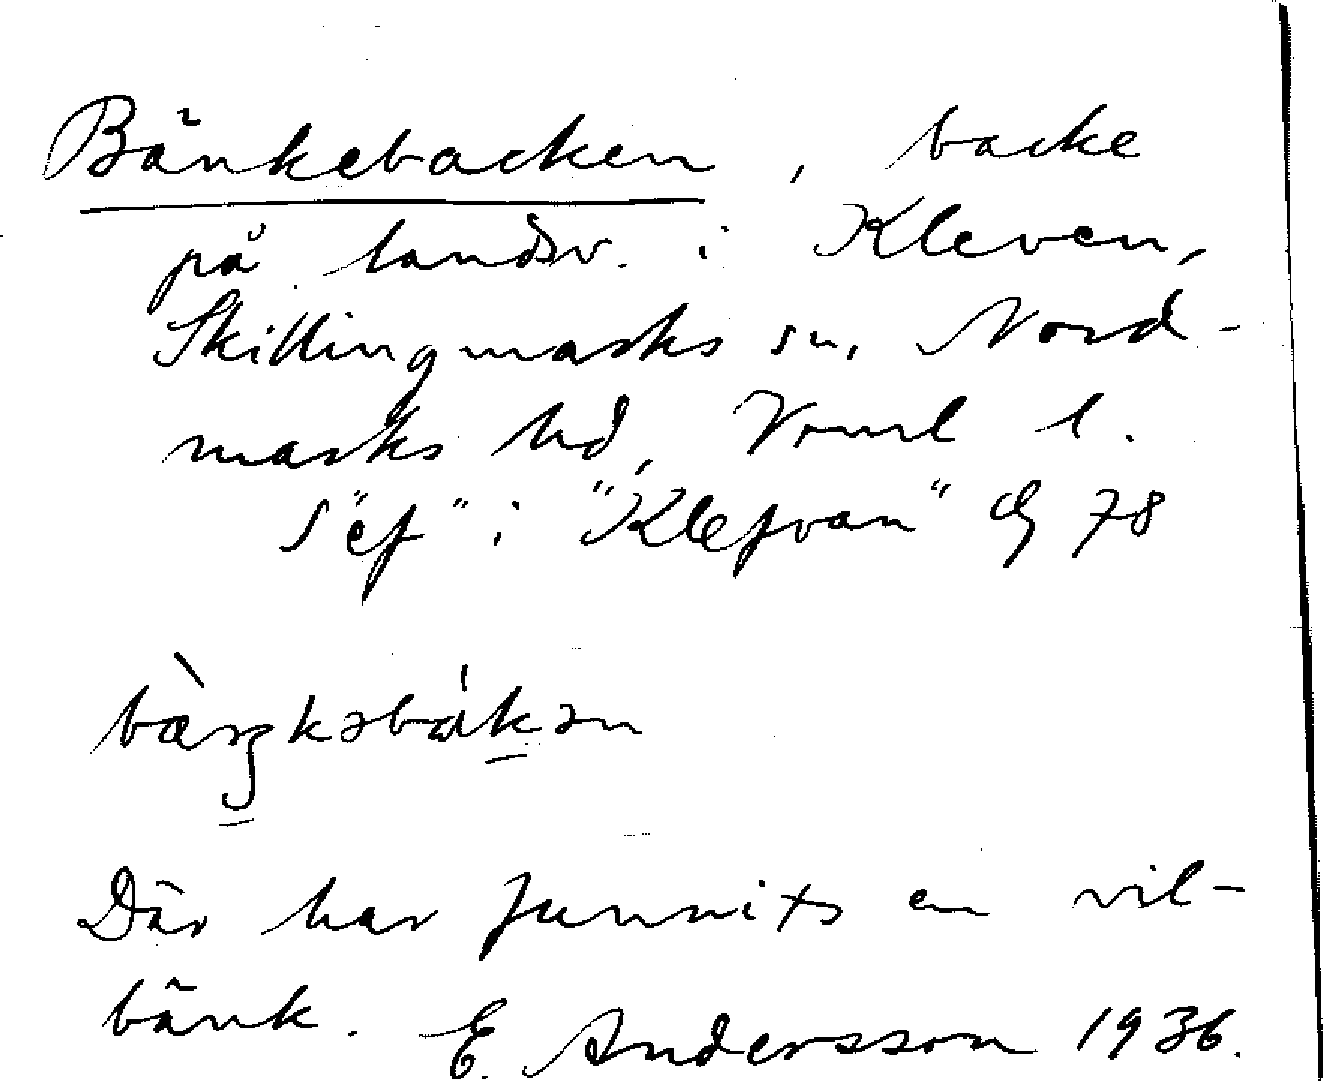 Bänkebacken, backe
på landsv. i Kleven,
Skillingmarks sn, Nord-
marks hd, Vrml l.
S "ef" i "Klefvan" G 78
bæŋkəbákən
Där har funnits en vil-
bänk. E. Andersson 1936.